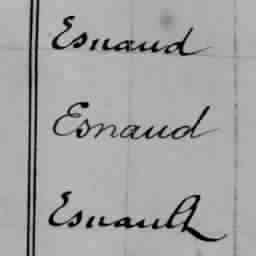 Esnaud
Esnaud
Esnault